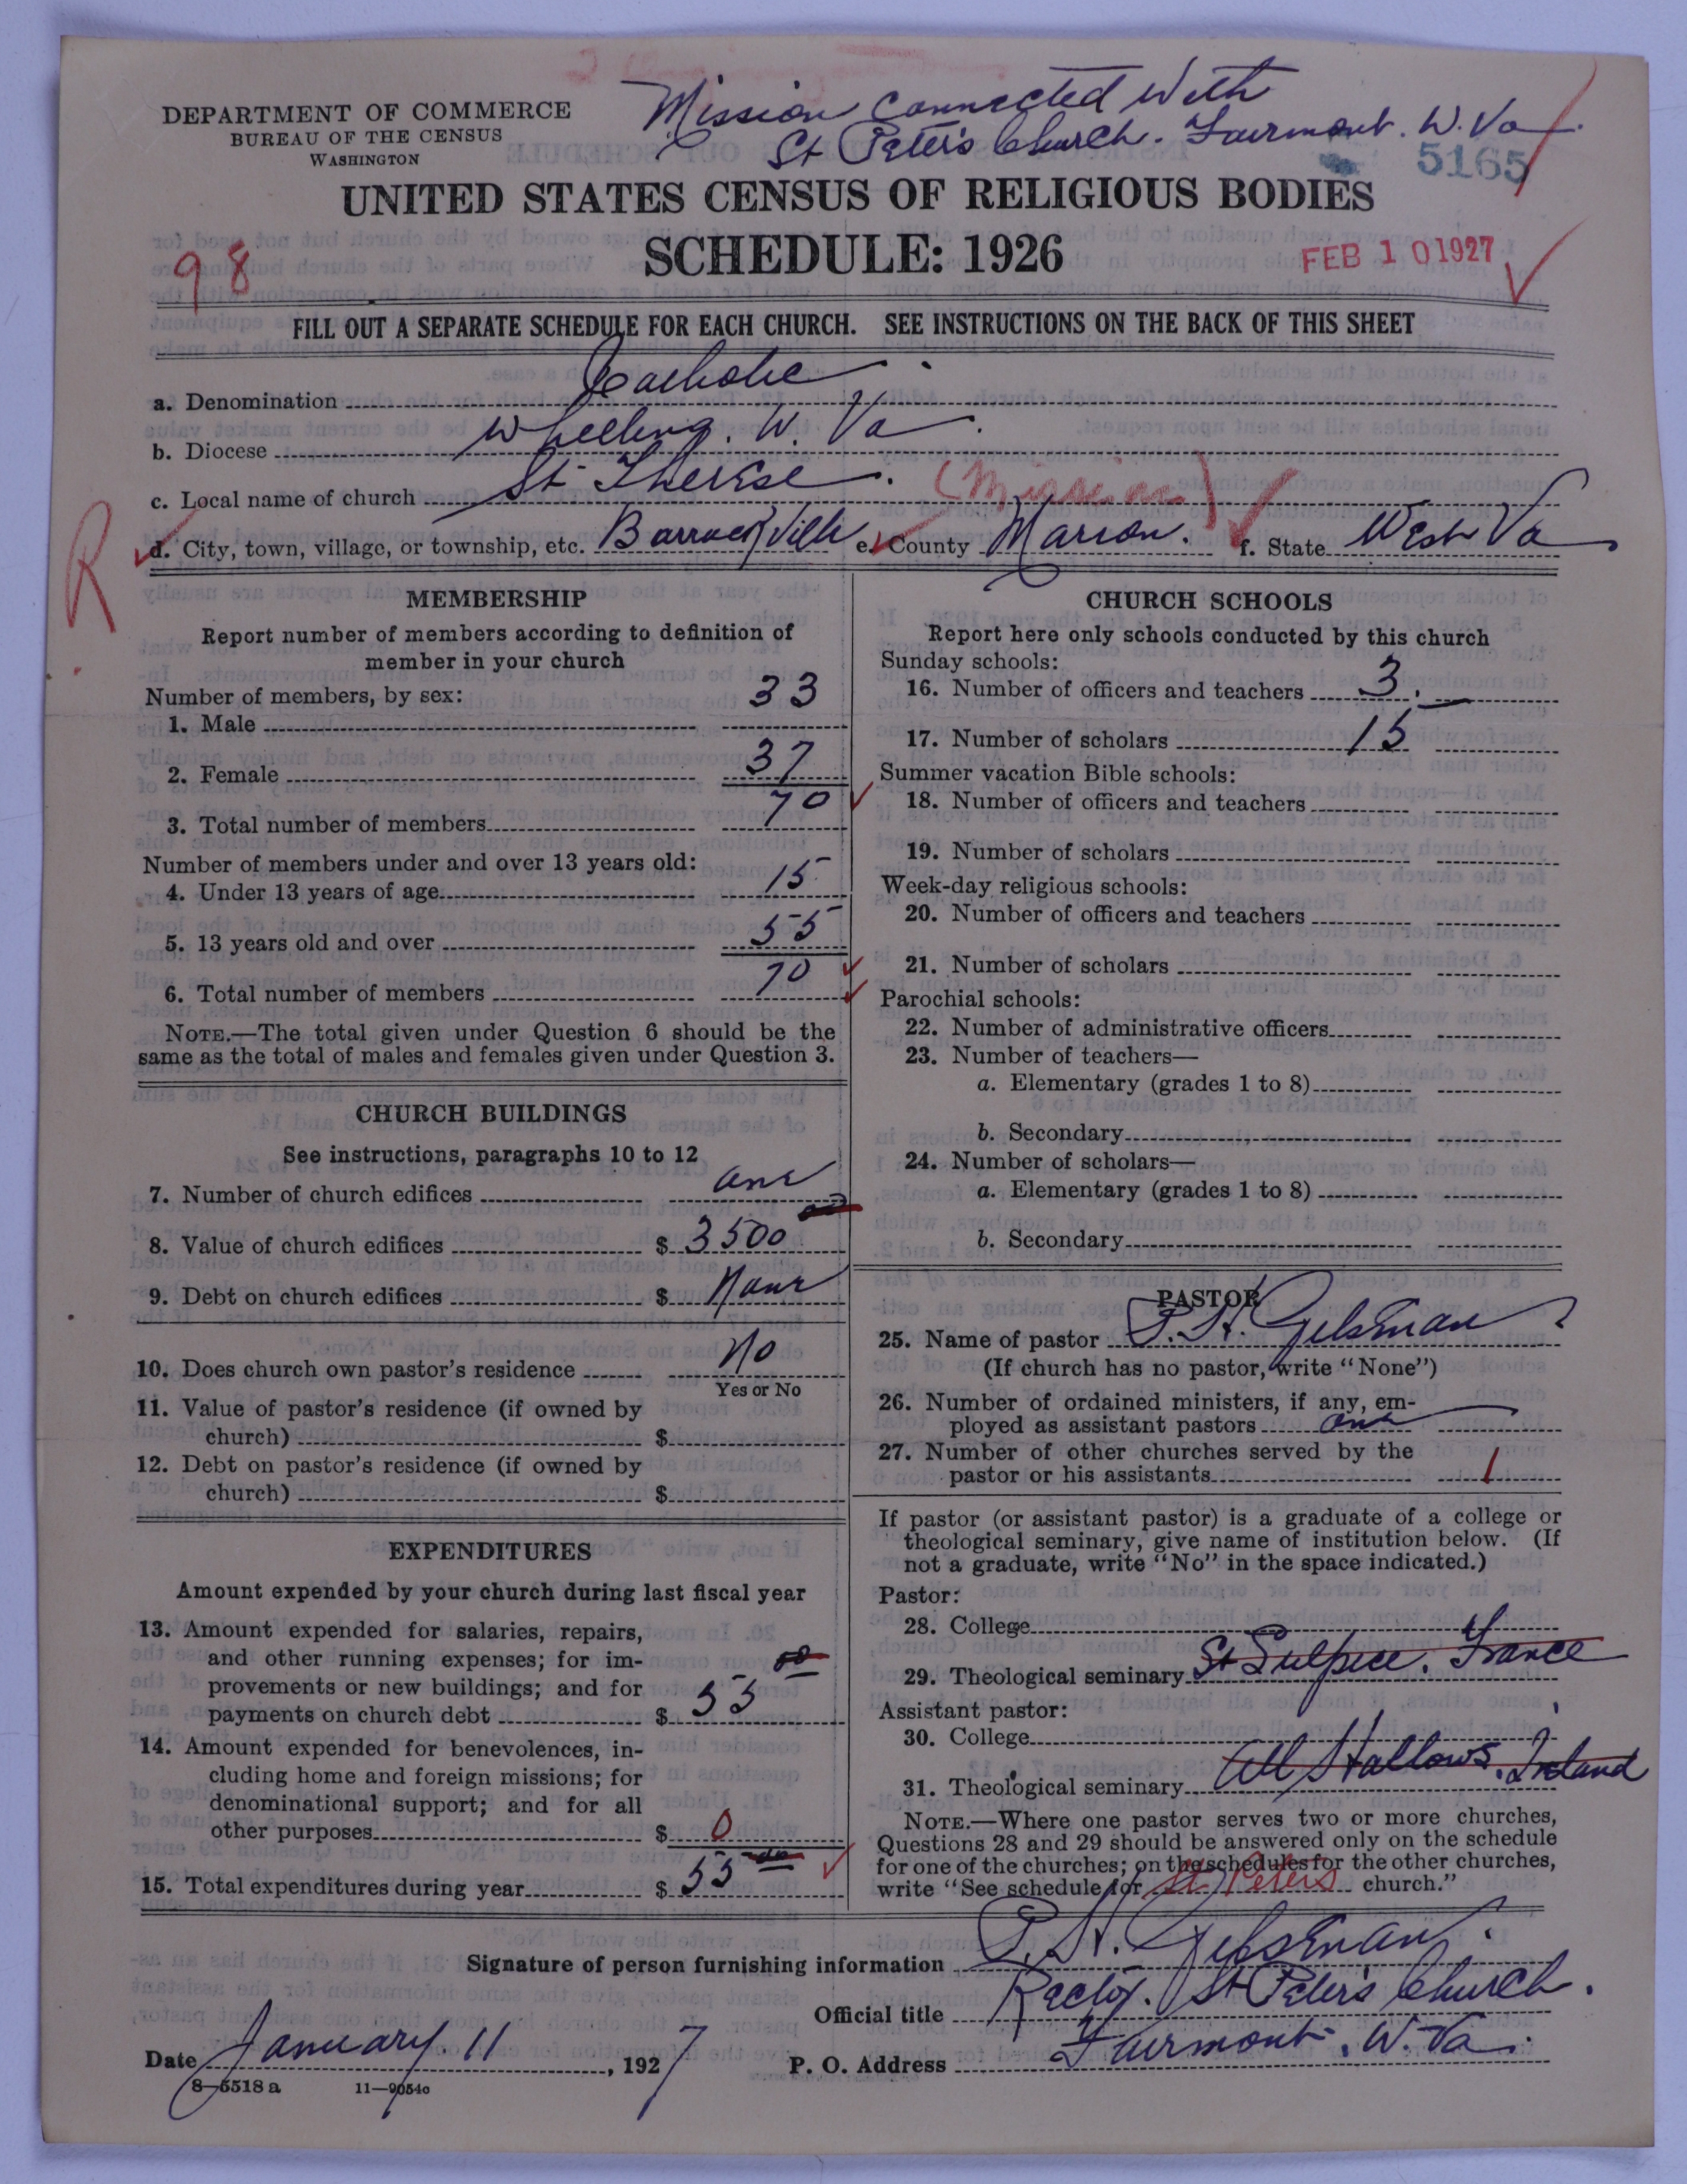 Mission connected with
St Peter's Church. Fairmont. W. Va.
DEPARTMENT OF COMMERCE
BUREAU OF THE CENSUS
WASHINGTON
5165
UNITED STATES CENSUS OF RELIGIOUS BODIES
SCHEDULE: 1926
98
FEB 10 1927
FILL OUT A SEPARATE SCHEDULE FOR EACH CHURCH. SEE INSTRUCTIONS ON THE BACK OF THIS SHEET
a. Denomination Catholic
b. Diocese Wheeling. W. Va.
c. Local name of church St Therese. (Mission)
R
d. City, town, village, or township, etc. Barrackville e. County Marion. f. State West Va
MEMBERSHIP
Report number of members according to definition of
member in your church
Number of members, by sex:
1. Male 33
2. Female 37
3. Total number of members 70
Number of members under and over 13 years old:
4. Under 13 years of age 15
5. 13 years old and over 55
6. Total number of members 70
NOTE.—The total given under Question 6 should be the
same as the total of males and females given under Question 3.
CHURCH BUILDINGS
See instructions, paragraphs 10 to 12
7. Number of church edifices one
8. Value of church edifices $ 3500 00
9. Debt on church edifices $ None
10. Does church own pastor's residence No
Yes or No
11. Value of pastor's residence (if owned by
church) $
12. Debt on pastor's residence (if owned by
church) $
EXPENDITURES
Amount expended by your church during last fiscal year
13. Amount expended for salaries, repairs,
and other running expenses; for im-
provements or new buildings; and for
payments on church debt $ 55 00
14. Amount expended for benevolences, in-
cluding home and foreign missions; for
denominational support; and for all
other purposes $ 0
15. Total expenditures during year $ 55 00
CHURCH SCHOOLS
Report here only schools conducted by this church
Sunday schools:
16. Number of officers and teachers 3.
17. Number of scholars 15
Summer vacation Bible schools:
18. Number of officers and teachers
19. Number of scholars
Week-day religious schools:
20. Number of officers and teachers
21. Number of scholars
Parochial schools:
22. Number of administrative officers
23. Number of teachers—
a. Elementary (grades 1 to 8)
b. Secondary
24. Number of scholars—
a. Elementary (grades 1 to 8)
b. Secondary
PASTOR
25. Name of pastor P. H. Gelsman
(If church has no pastor, write "None")
26. Number of ordained ministers, if any, em-
ployed as assistant pastors one
27. Number of other churches served by the
pastor or his assistants 1
If pastor (or assistant pastor) is a graduate of a college or
theological seminary, give name of institution below. (If
not a graduate, write "No" in the space indicated.)
Pastor:
28. College
29. Theological seminary St Sulpice. France
Assistant pastor:
30. College
31. Theological seminary All Hallows. Ireland
NOTE.—Where one pastor serves two or more churches,
Questions 28 and 29 should be answered only on the schedule
for one of the churches; on the schedules for the other churches,
write "See schedule for St. Peters church."
Signature of person furnishing information P. H. Gelsman.
Official title Rector. St Peter's Church.
Date January. 11, 1927 P. O. Address Fairmont. W. Va.
8—5518 a 11—9054c